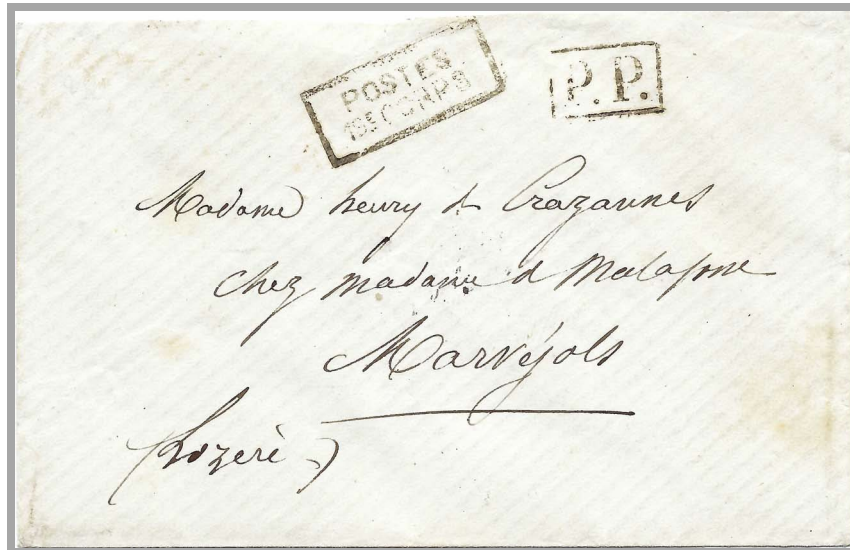 POSTES
18E CORPS
P.P.
Madame henry de Crazannes
chez madame de Malafosse
Marvéjols
(Lozère)